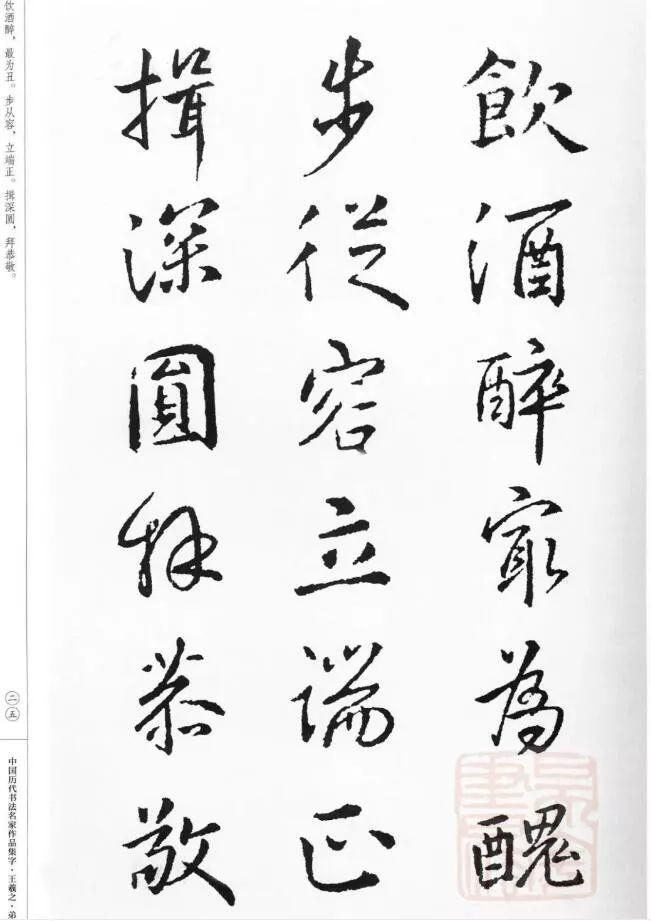 飲酒醉冣為醜
步從容立端正
揖深圓拜恭敬
饮酒醉，最为丑。步从容，立端正。揖深圆，拜恭敬。
二五
中国历代书法名家作品集字·王羲之·弟